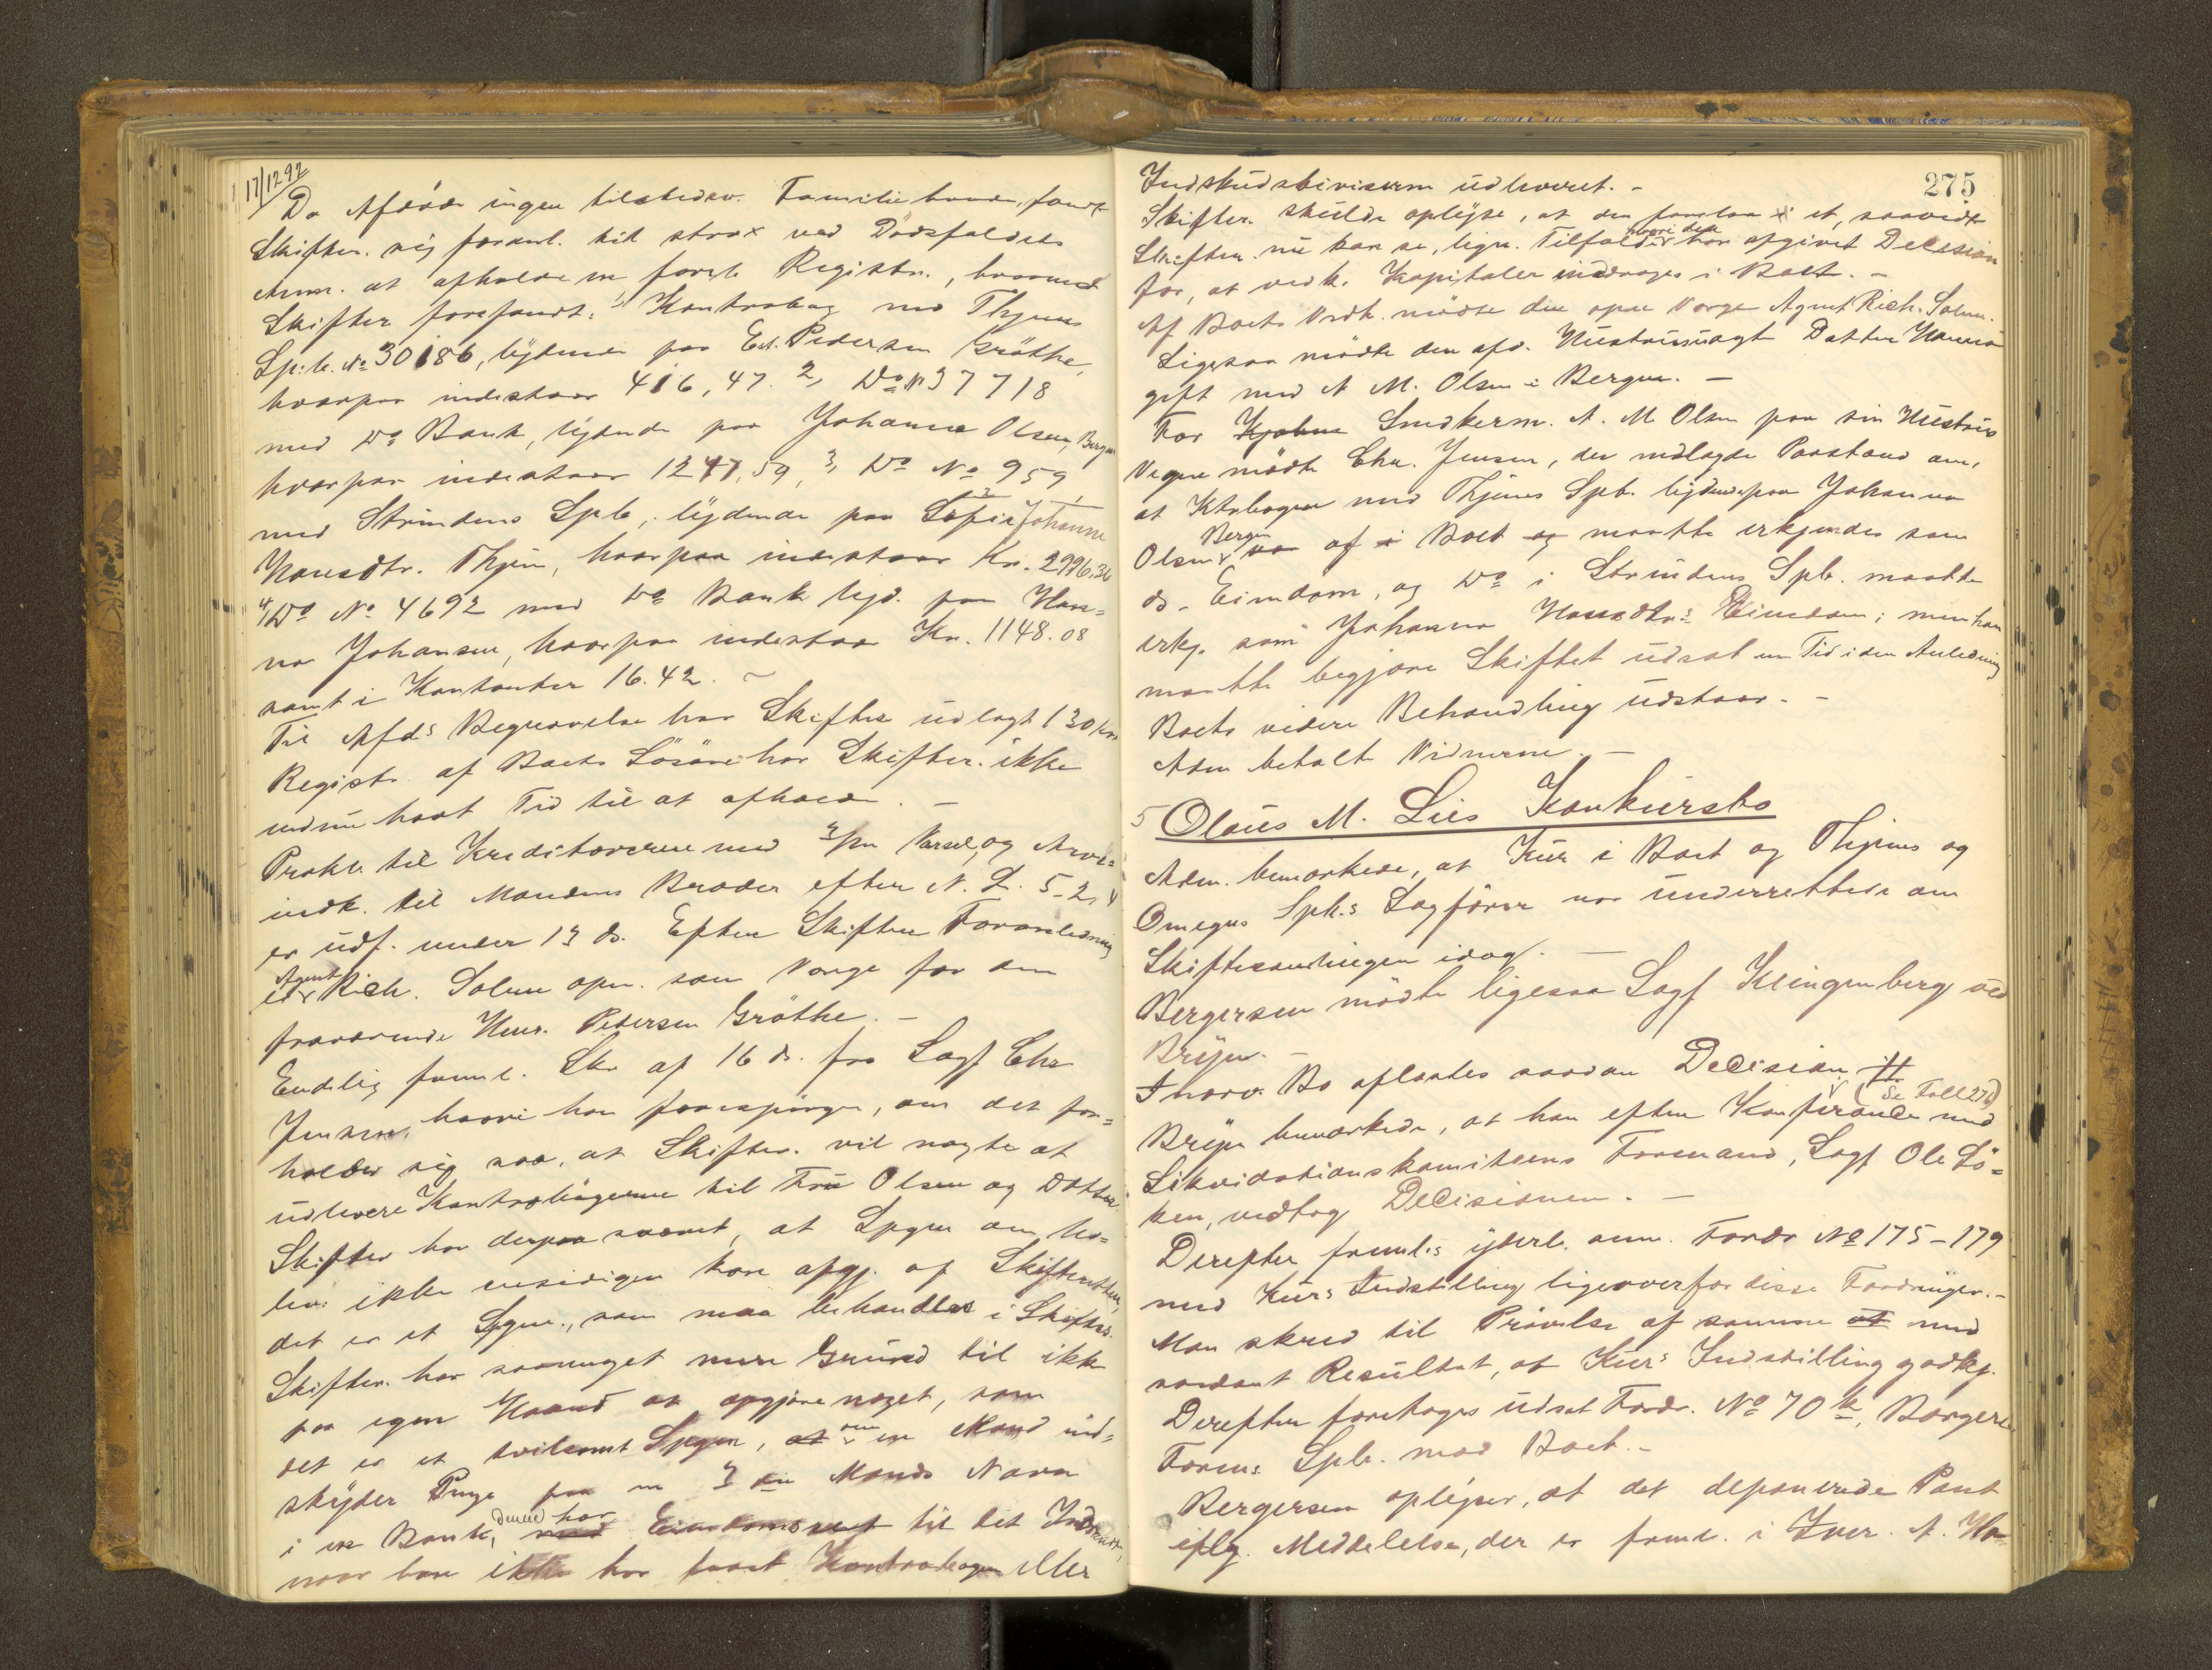 17/12 92
Da Afdöde ingen tilstedev. Familie havde, fandt
Skifter. sig foranl. til strax ved Dödsfaldets
Anm. at afholde en foreb. Registr., hvorved
Skifter forefandt: 1, Kontrabog med Thjems
Sp:b. No 30186, lydende paa Ed. Pedersen Gröthe,
hvorpaa indestaar 416,47. 2, Do No 37718
med Do Bank, lydende paa Johanna Olsen, Bergen
hvorpaa indestaar 1247,59, 3, Do No 959,
med Strindens Spb., lydende paa Sofie Johanna
Hansdtr. Thjem, hvorpaa indestaar Kr. 2996,36
4, Do No 4692 med Do Bank lyd. paa Han=
na Johansen, hvorpaa indestaar Kr. 1148.08
samt i Kontanter 16.42. –
Til Afd.s Begravelse har Skifter udlagt 130 Kr.
Registr. af Boets Lösöre har Skifter. ikke
endnu havt Tid til at afholde. –
Prokl. til Kreditorerne med 3/m Varsel, og Arve=
indk. til Mandens Broder efter N. L. 5-2,4
er udf. under 13 ds. Efter Skifter Foranledning
er Agent Rich. Solem opn. som Verge for den
fraværende Henr. Petersen Gröthe. –
Endelig freml. Skr. af 16 ds. fra Sagf Chr
Jensen, hvori han forespörger, om det for=
holder sig saa, at Skifter. vil nægte at
udlevere Kontrabögerne til Fru Olsen og Datter.
Skifter har derpaa svaret, at Spgm om ud=
lev. ikke ensidigen kan afgj. af Skifteretten,
det er et Spgm., som maa behandles i Skifter.
Skifter. har saameget mere Grund til ikke
paa egen Haand at afgjöre noget, som
det er et tvilsomt Spgm, at om en Mand ind=
skyder Penge paa en 3 die Mands Navn
i en Bank, denne har med Eiendomsret til det Indskudte,
naar han ikke har faaet Kontrabogen eller
275
Indskudsbeviserne udleveret. –
Skifter. skulde oplyse, at den foreløb i et, saavidt
Skifter. nu kan se, lign. Tilfælde hvori den har afgivet Decision
for, at vedk. Kapitaler inddrages i Boet. –
Af Boets Vedk. mödte den opn Verge Agent Rich. Solem.
Ligesaa mödte den afd. Hustrus uægte Datter Hanna
gift med A M. Olsen i Bergen. –
For Kjøbm Snedkerm. A. M. Olsen paa sin Hustrus
Vegne mödte Chr. Jensen, der nedlagde Paastand om,
at Ktrbogen med Thjems Spb. lydende paa Johanna
Olsen Bergen var af i Boet og maatte erkjendes som
ds. Eiendom, og Do i Strindens Spb. maatte
erkj. som Johanna Hansdtrs Eiendom; men han
maatte begjære Skiftet udsat en Tid i den Anledning
Boets videre Behandling udstaar. –
Adm betalt Vidnerne. –
5 Olaus M. Lies Konkursbo
Adm. bemærkede, at Kur i Boet og Thjems og
Omegns Spb.s Sagförer var underrettede om
Skiftesamlingen idag. –
Bergersen mödte ligesaa Sagf Klingenberg ved
Bryn. –
I nærv. Bo afsagdes saadan Decision # (Se Foll 276)
Bryn bemærkede, at han efter Konferance med
Likvidationskomiteens Formand, Sagf Ole Lö=
ken, vedtog Decisionen. –
Derefter freml.s yderl. anm. Fordr No 175–179
med Kurs Indstilling ligeoverfor disse Fordringer. –
Man skred til Prövelse af samme at med
saadant Resultat, at Kurs Indstilling godkj.
Derefter foretages udsat Fordr. No 70 k, Borgerl
Foren.s Spb. mod Boet. –
Bergersen oplyser, at det deponerede Pant
iflg. Meddelelse, der er freml. i Iver. A. Ha=